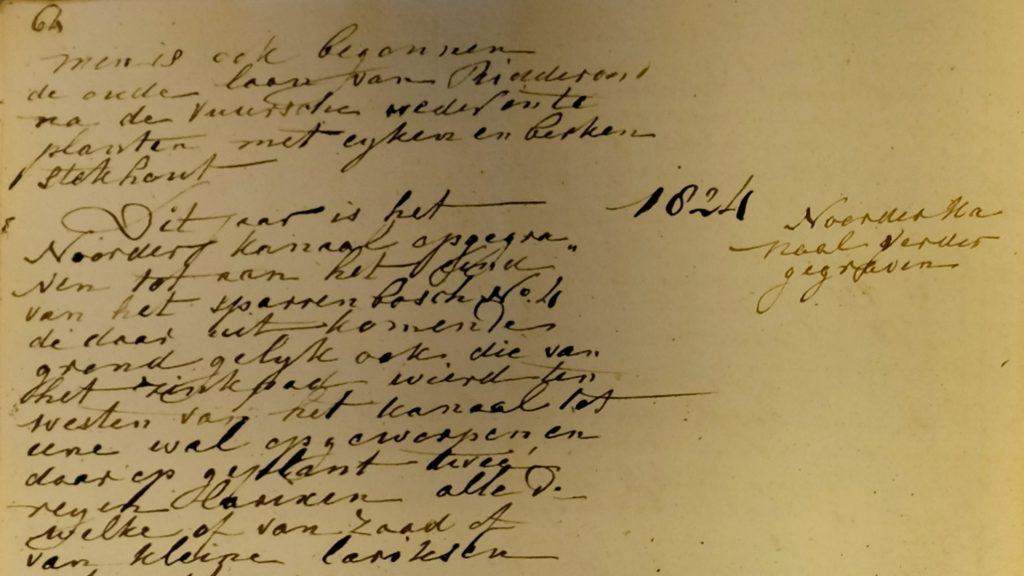 64
men is ook begonnen
de oude laan van Ridderoord
na de vuursche wederom te
planten met eyken en berken
stekhout
Dit jaar is het
1824
Noorder kanaal opgegra„
Noorder Ka
naal verder
gegraven
ven tot aan het eind
van het sparrenbosch No. 4
de daar uit komende
grond gelyk ook die van
het zinkpad wierd ten
westen van het kanaal tot
eene wal opgeworpen en
daar op geplant twee
reyen Larixen alle
welke of van zaad of
van kleine lariksen